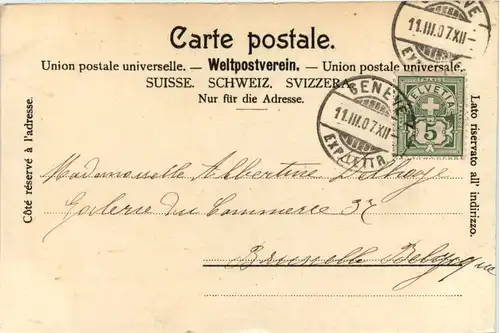 Carte postale.
Union postale universelle. — Weltpostverein. — Union postale universale.
SUISSE. SCHWEIZ. SVIZZERA.
Nur für die Adresse.
Côté réservé à l'adresse.
Lato riservato all' indirizzo.
GENEVE
11.III.07.XII-
EXP. LETTR.
GENEVE 1
11.III.07.XII-
HELVETIA
5
Mademoiselle Albertine
Galerie du Commerce 37
Bruxelles Belgique